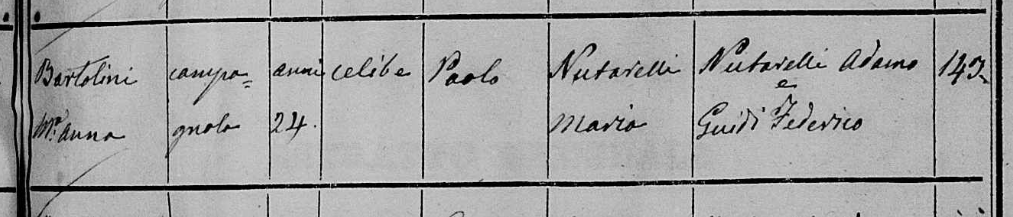 Bartolini campa= anni celibe Paolo Nutarelli Nutarelli Adamo 143
e
Mª anna gnola 24. Maria Guidi Federico